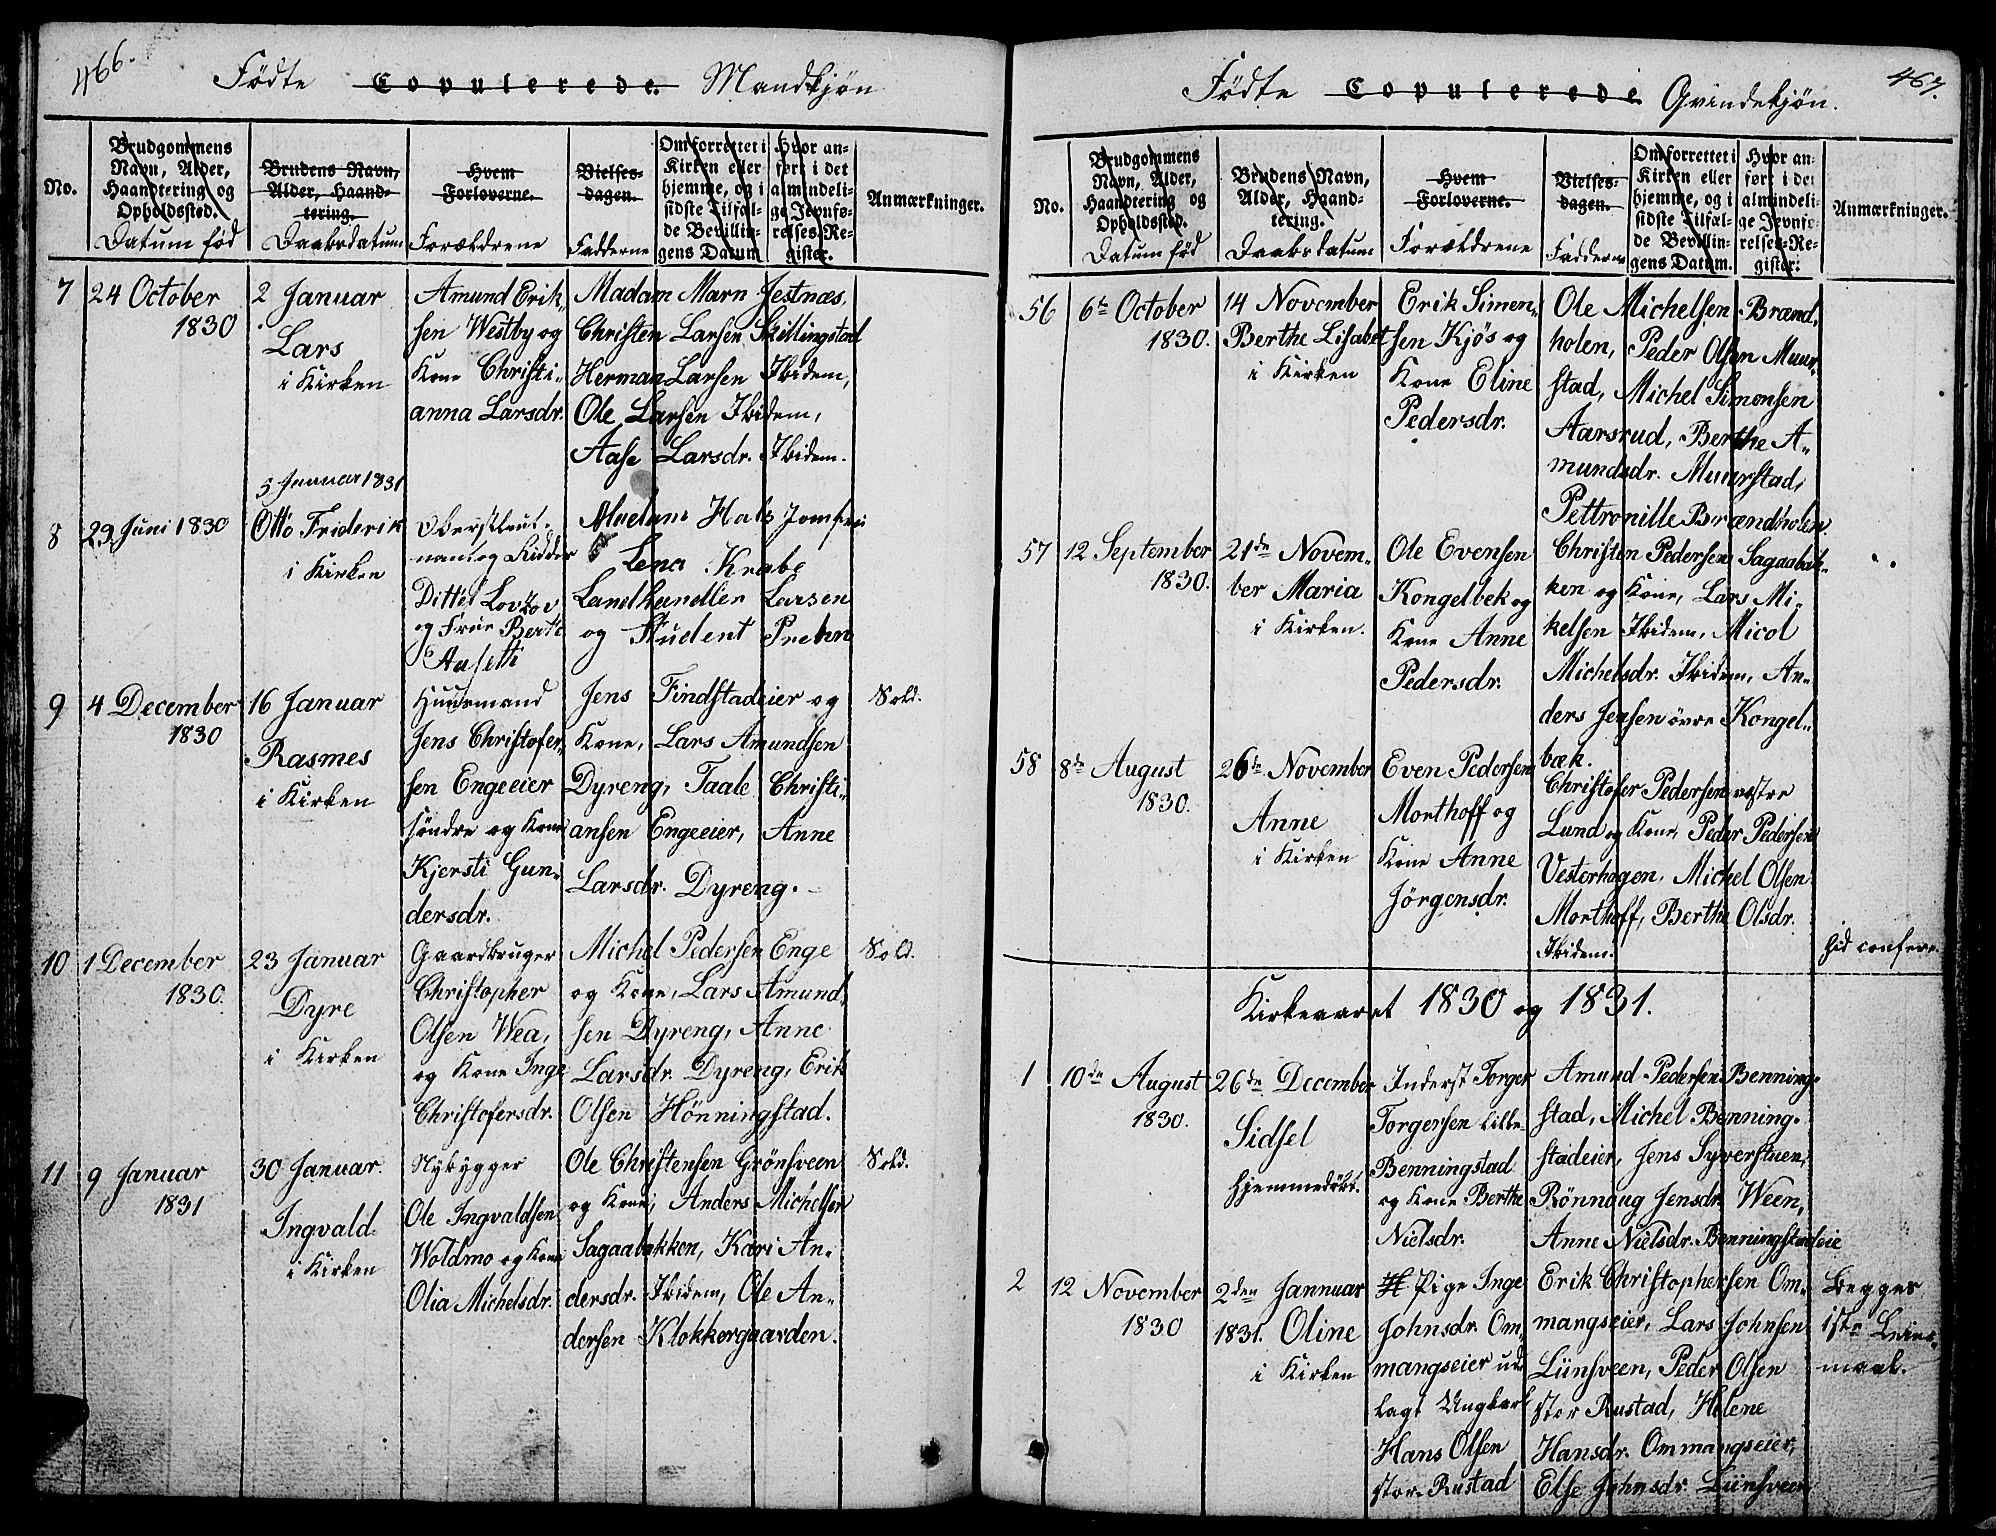 466.
Födte Copulerede. Mandkjön
No.
Brudgommens Navn, Alder, Haandtering og Opholdssted.
Datum föd
Brudens Navn, Alder, Haandtering.
Daabsdatum
Hvem Forloverne.
Forældrene
Vielses-dagen.
Fadderne
Om forrettet i Kirken eller hjemme, og i sidste Tilfælde Bevillingens Datum
Hvor anført i det almindelige Jevnførelses-Register.
Anmærkninger.
7 24 October 1830
2 Januar
Lars
i Kirken
Amund Erik-
sen Westby og
Kone Christi-
anna Larsdr.
Madam Marn Jestnæs,
Christen Larsen Skillingstad
Herman Larsen Ibidem,
Ole Larsen Ibidem,
Aase Larsdr. Ibidem.
8 29 Juni 1830
5 Januar 1831
Otto Friderik
i Kirken
Oberstleut-
nant og Ridder
Ditlef Lovzov
og Frue Berte
Madam Hals Jomfru
Lena Krabe
Landhandler Larsen
og Student Prehn
9 4 December 1830
16 Januar
Rasmes
i Kirken
Huusmand
Jens Christofer-
sen Engeeier
söndre og Kone
Kjersti Gun-
dersdr.
Jens Findstadeier og
Kone, Lars Amundsen
Dyreng, Taale Christi-
ansen Engeeier, Anne
Larsdr. Dyreng.
Sold.
10 1 December 1830.
23 Januar
Dyre
i Kirken
Gaardbruger
Christopher
Olsen Wea,
og Kone Inge
Christofersdr.
Michel Pedersen Enge
og Kone, Lars Amund-
sen Dyreng, Anne
Larsdr. Dyreng, Erik
Olsen Hönningstad.
Sold.
11 9 Januar 1831
30 Januar.
Ingvald
i Kirken
Nybygger
Ole Ingvaldsen
Woldmo og Kone
Olia Michelsdr.
Ole Christensen Grönsveen
og Kone, Anders Michelsen
Sagaabakken, Kari An-
dersdr. Ibidem, Ole An-
dersen Klokkergaarden.
Sold.
467.
Födte Copulerede Qvindekjön.
No.
Brudgommens Navn, Alder, Haandtering og Opholdssted.
Datum föd
Brudens Navn, Alder, Haandtering.
Daabsdatum
Hvem Forloverne.
Forældrene
Vielses-dagen.
Fadderne
Om forrettet i Kirken eller hjemme, og i sidste Tilfælde Bevillingens Datum.
Hvor anført i det almindelige Jevnførelses-Register.
Anmærkninger.
56 6te October 1830.
14 November
Berthe Lisabet
i Kirken
Erik Simen-
sen Kjös og
Kone Eline
Pedersdr.
Ole Michelsen Brænd-
holen, Peder Olsen Muur-
stad, Michel Simonsen
Aarsrud, Berthe A-
mundsdr. Muurstad,
Pettronille Brændholen.
57 12 September 1830.
21de Novem-
ber Maria
i Kirken.
Ole Evensen
Kongelbek og
Kone Anne
Pedersdr.
Christen Pedersen Sagaabak-
ken og Kone, Lars Mi-
kelsen Ibidem, Micol
Michelsdr. Ibidem, An-
ders Jensen övre Kongel-
bæk.
58 8de August 1830.
26de November
Anne
i Kirken
Even Pedersen
Morthoff og
Kone Anne
Jörgensdr.
Christofer Pedersen vestre
Lund og Kone, Peder Pedersen
Vesterhagen, Michel Olsen
Morthoff, Berthe Olsdr.
Ibidem.
hid confere.
Kirkeaaret 1830 og 1831.
1 10de August 1830.
26de December
Sidsel
hjemmedöbt.
Inderst Torger
Torgersen Lille-
Benningstad
og Kone Berthe
Nielsdr.
Amund Pedersen Benning-
stad, Michel Benning-
stadeier, Jens Syverstuen,
Rönnaug Jensdr. Ween,
Anne Nielsdr. Benningstadeie
2 12 November 1830
2den Jannuar
1831. Oline
i Kirken
Pige Inge
Johnsdr. Om-
mangseier ud-
lagt Ungkarl
Hans Olsen
stor-Rustad
Erik Christophersen Om-
mangseier, Lars Johnsen
Lünsveen, Peder Olsen
stor Rustad, Helene
Hansdr. Ommangseier,
Else Johnsdr. Lünsveen
Begges
1ste Leier-
maal.